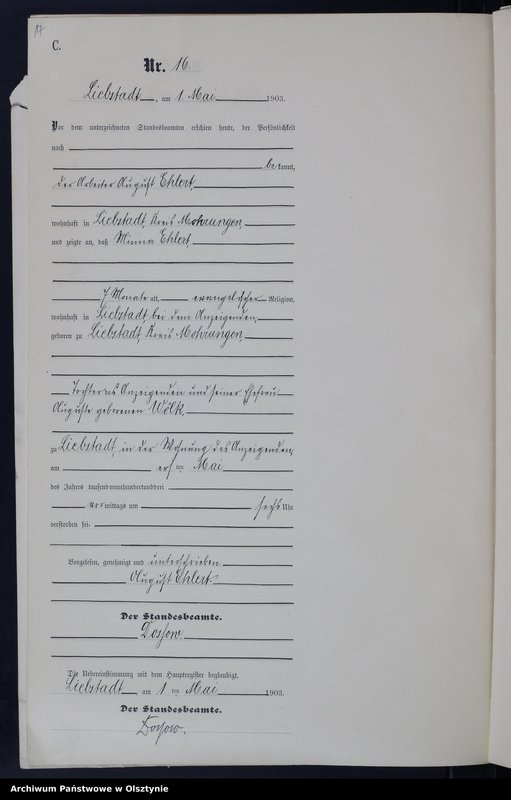 17
C.
Nr. 16.
Liebstadt, am 1 Mai 1903.
Vor dem unterzeichneten Standesbeamten erschien heute, der Persönlichkeit
nach
bekannt,
der Arbeiter August Ehlert,
wohnhaft in Liebstadt, Kreis Mohrungen,
und zeigte an, daß Minna Ehlert,
7 Monate alt, evangelischer Religion,
wohnhaft in Liebstadt bei dem Anzeigenden,
geboren zu Liebstadt, Kreis Mohrungen,
Tochter des Anzeigenden und seiner Ehefrau
Auguste geborenen Wölk,
zu Liebstadt, in der Wohnung des Anzeigenden,
am ersten Mai
des Jahres tausendneunhundertunddrei
vormittags um sechs Uhr
verstorben sei.
Vorgelesen, genehmigt und unterschrieben
August Ehlert.
Der Standesbeamte.
Dossow.
Die Uebereinstimmung mit dem Hauptregister beglaubigt.
Liebstadt, am 1 ten Mai 1903.
Der Standesbeamte.
Dossow.
Archiwum Państwowe w Olsztynie